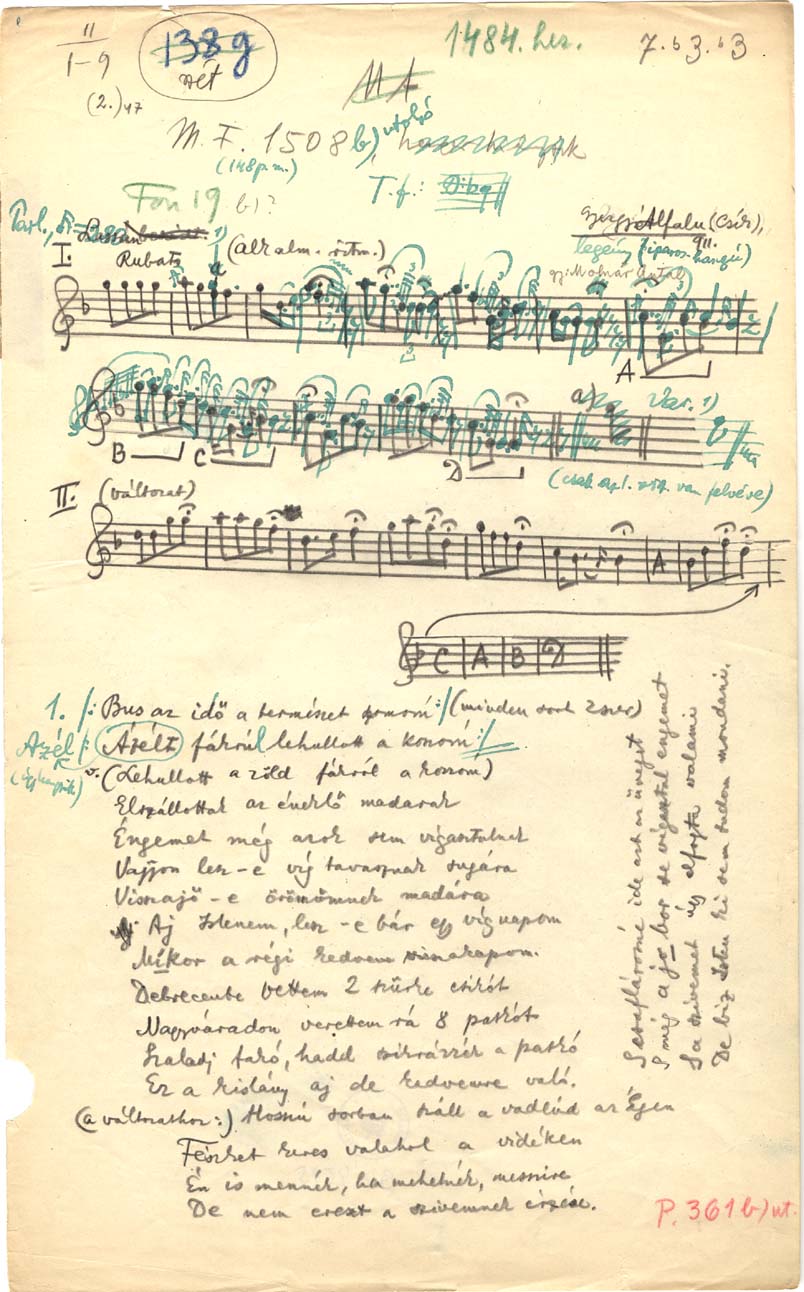 II
1-9
138g
1484. hez.
7. b3. b3
(2.) 47
M. F. 1508 b) utolsó
(148 p.m.)
T.f.:
Fon 19 b)?
Parl.,
Gyergyó Alfalu (Csík),
911.
Rubato
1)
(alkalm. ritm.)
Legény
gy: Molnár Antal
I.
A
a)
Var. 1)
B
C
D
II.
(változat)
A
C A B D
1. /: Bus az idő a természet :/ (minden sort 2szer)
Azél /: Azélt fákrúl lehullott a koszorú :/
v. (Lehullott a zöld fákról a koszorú)
Elszállottak az éneklő madarak
Éngemet még azok sem vigasztalnak
Vajjon lesz-e víg tavasznak sugára
Visszajő-e örömömnek madára
Aj Istenem, lesz-e bár egy víg napom
Mikor a régi kedvem visszakapom.
Debrecenbe vettem 2 szürke csikót
Nagyváradon verettem rá 8 patkót
Szaladj fakó, hadd szikrázzék a patkó
Ez a kislány aj de kedvemre való.
(a változathoz:) Hosszú sorban száll a vadlúd az égen
Fészket keres valahol a vidéken
Én is mennék, ha mehetnék, messzire
De nem ereszt a szivemnek érzése.
Csaplárosné ide azt az üveget
S még a jo bor se vigasztal engemet
S a szivemet úgy elfogta valami
De biz Isten ki sem tudom mondani.
P. 361 b) ut.